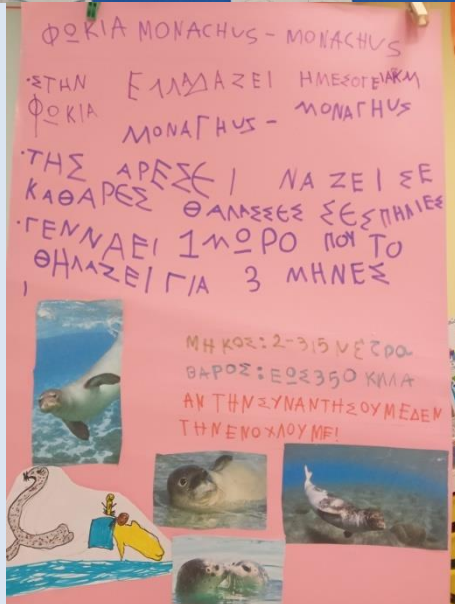 ΦΩΚΙΑ MONACHUS - MONACHUS
·ΣΤΗΝ ΕΛΛΑΔΑ ΖΕΙ Η ΜΕΣΟΓΕΙΑΚΗ
ΦΩΚΙΑ MONACHUS - MONACHUS
·ΤΗΣ ΑΡΕΣΕΙ ΝΑ ΖΕΙ ΣΕ
ΚΑΘΑΡΕΣ ΘΑΛΑΣΣΕΣ ΣΕ ΣΠΗΛΙΕΣ
·ΓΕΝΝΑΕΙ 1 ΜΩΡΟ ΠΟΥ ΤΟ
ΘΗΛΑΖΕΙ ΓΙΑ 3 ΜΗΝΕΣ
ΜΗΚΟΣ: 2-3,5 ΜΕΤΡΑ
ΒΑΡΟΣ: ΕΩΣ 350 ΚΙΛΑ
ΑΝ ΤΗΝ ΣΥΝΑΝΤΗΣΟΥΜΕ ΔΕΝ
ΤΗΝ ΕΝΟΧΛΟΥΜΕ!